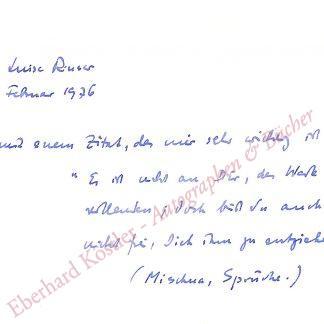 Luise Rinser
Februar 1976
mit einem Zitat, das mir sehr wichtig ist
" Es ist nicht an Dir, das Werk
vollenden, doch bist Du auch
nicht frei, Dich ihm zu entziehe
(Mischna, Sprüche.)
Eberhard Köstler - Autographen & Bücher